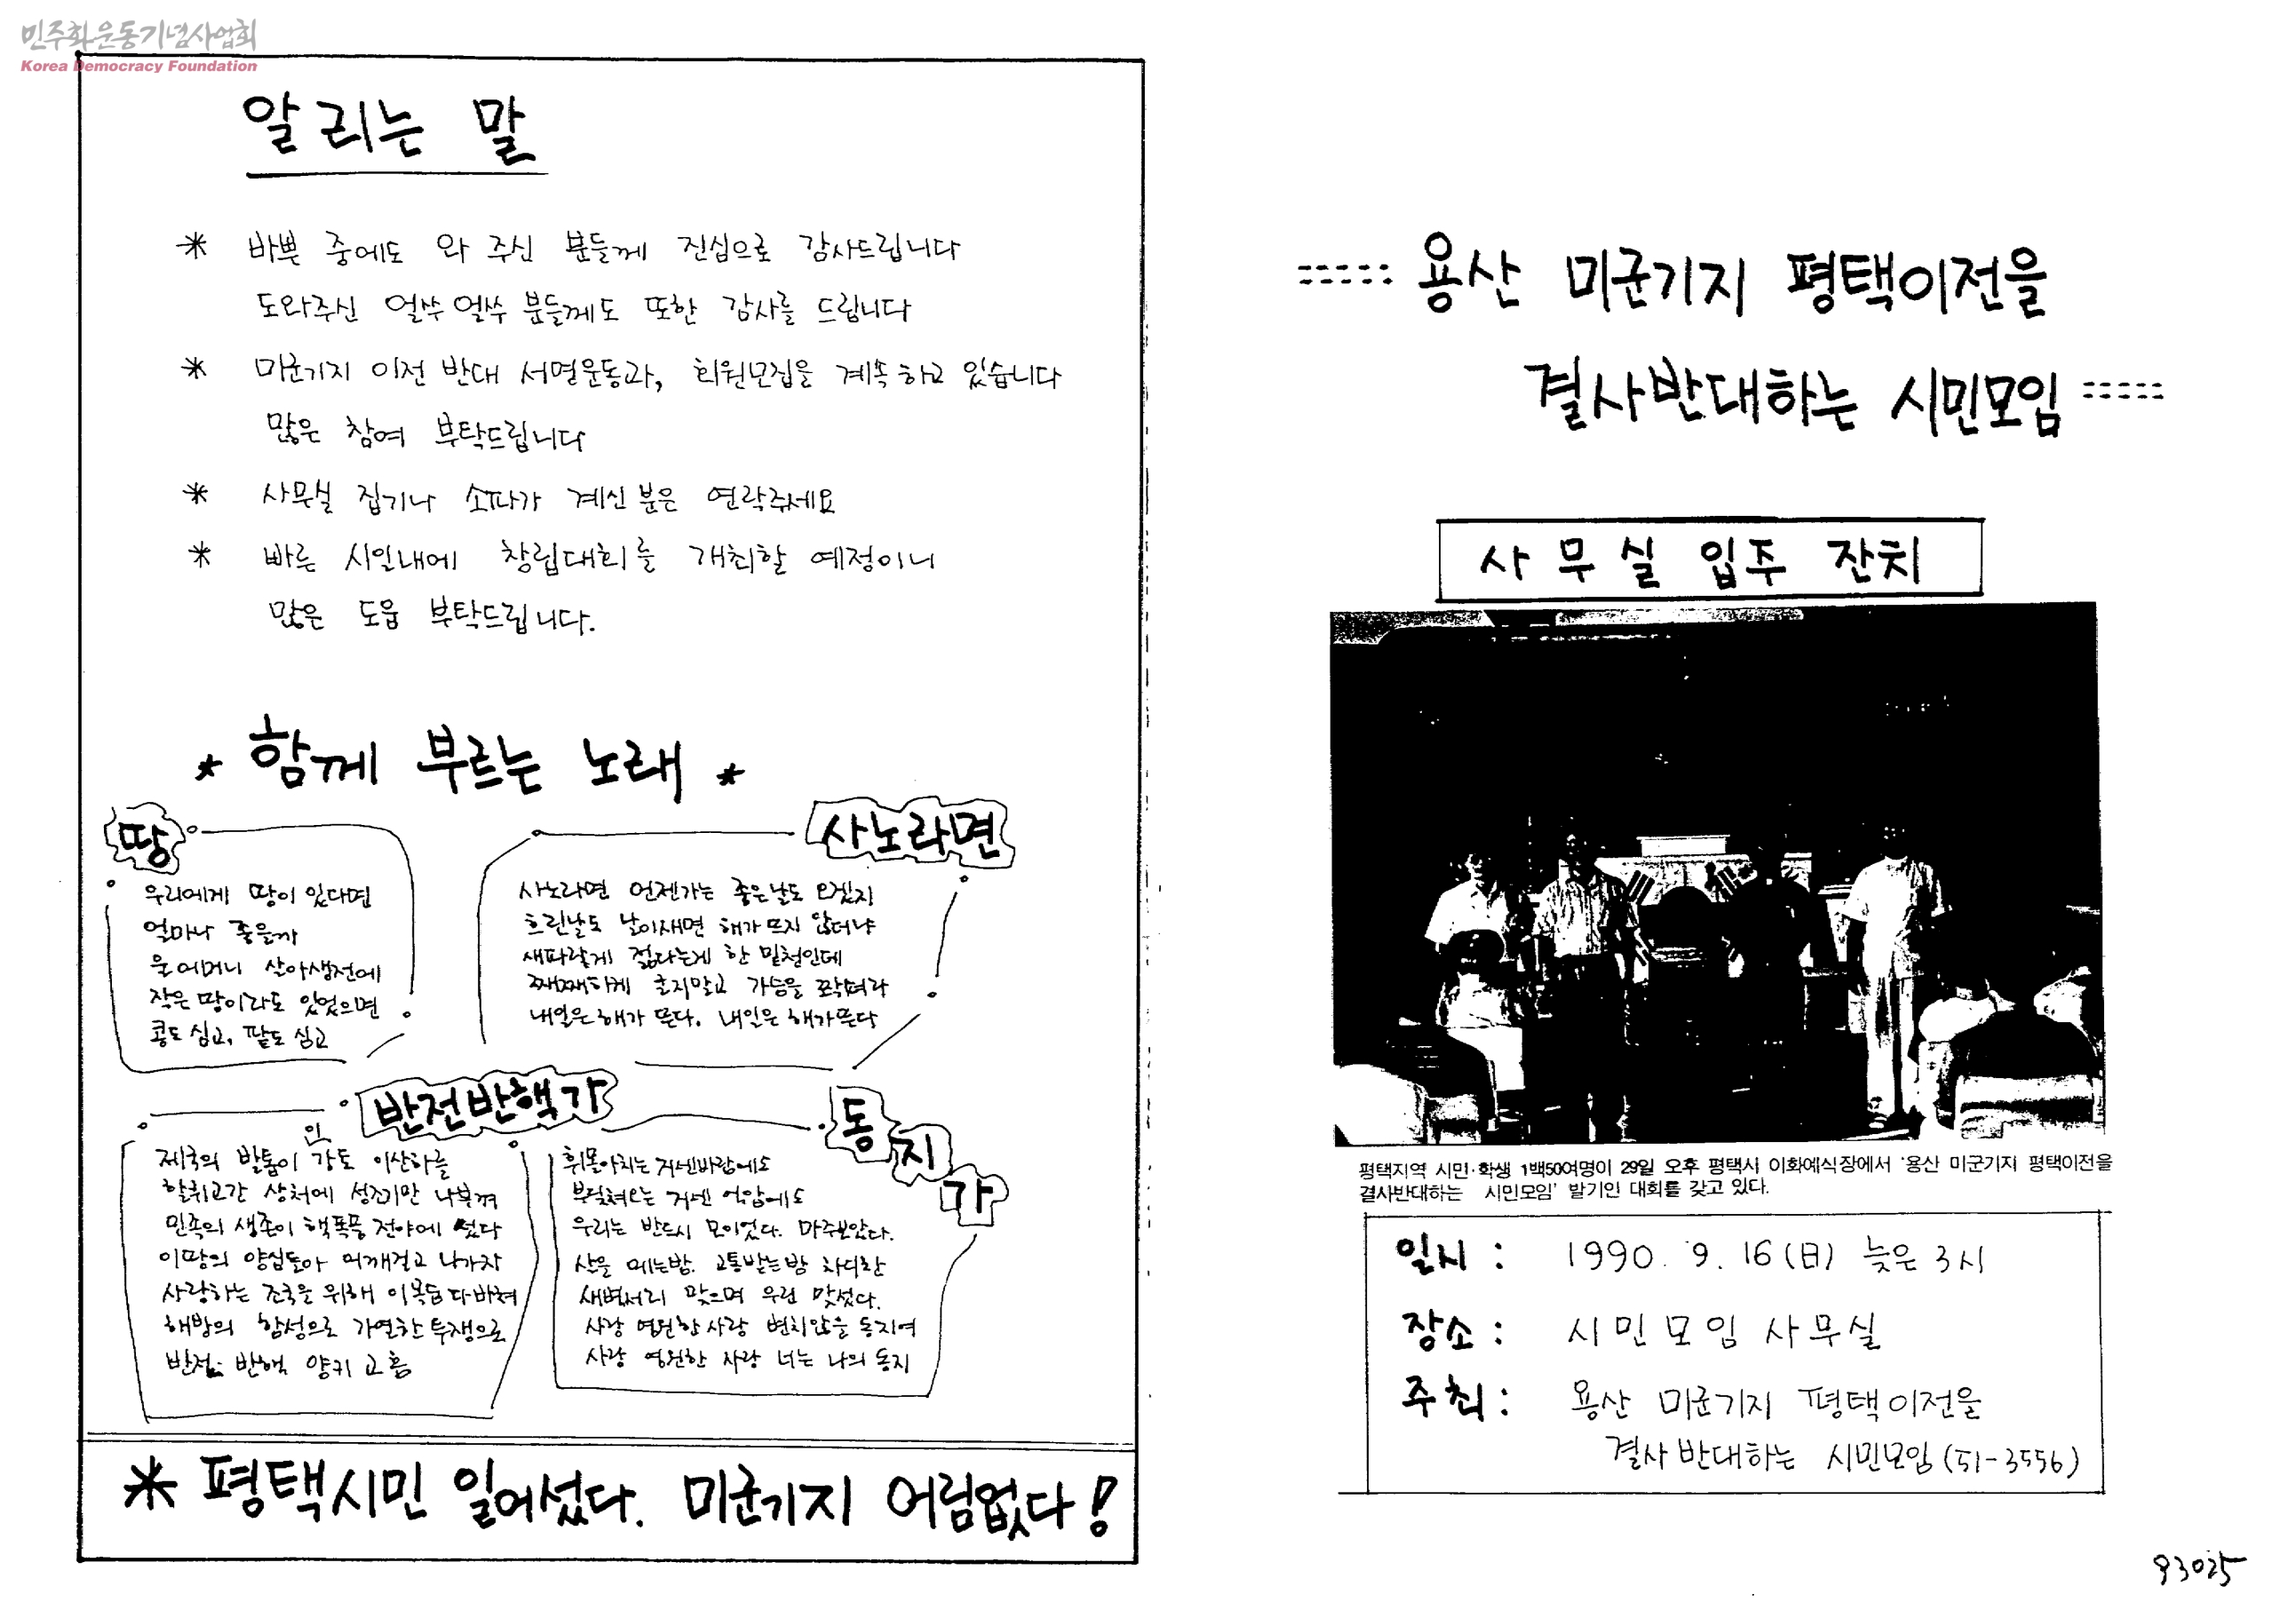 민주화운동기념사업회
Korea Democracy Foundation
알리는 말
* 바쁜 중에도 와 주신 분들께 진심으로 감사드립니다
도와주신 얼쑤 얼쑤 분들께도 또한 감사를 드립니다
* 미군기지 이전 반대 서명운동과, 회원모집을 계속하고 있습니다
많은 참여 부탁드립니다
* 사무실 집기나 소파가 계신 분은 연락주세요
* 빠른 시일내에 창립대회를 개최할 예정이니
많은 도움 부탁드립니다.
* 함께 부르는 노래 *
땅
우리에게 땅이 있다면
얼마나 좋을까
울어머니 살아생전에
작은 땅이라도 있었으면
콩도 심고, 팥도 심고
사노라면
사노라면 언젠가는 좋은날도 오겠지
흐린날도 날이새면 해가 뜨지 않더냐
새파랗게 젊다는게 한 밑천인데
째째하게 굴지말고 가슴을 쫙펴라
내일은 해가 뜬다. 내일은 해가뜬다
반전반핵가
제국의 발톱이 강토 이산하를
할퀴고간 상처에 성조기만 나부껴
민족의 생존이 핵폭풍 전야에 섰다
이땅의 양심들아 어깨걸고 나가자
사랑하는 조국을 위해 이목숨 다바쳐
해방의 함성으로 가열찬 투쟁으로
반전 반핵 양키 고홈
동지가
휘몰아치는 거센바람에도
부딪쳐오는 거센 억압에도
우리는 반드시 모이었다. 마주보았다.
산을 에는밤. 고통받는밤 차디찬
새벽서리 맞으며 우린 맞섰다.
사랑 영원한 사랑 변치않을 동지여
사랑 영원한 사랑 너는 나의 동지
* 평택시민 일어섰다. 미군기지 어림없다!
::::: 용산 미군기지 평택이전을
결사반대하는 시민모임 :::::
사무실 입주 잔치
평택지역 시민·학생 1백50여명이 29일 오후 평택시 이화예식장에서 '용산 미군기지 평택이전을
결사반대하는 시민모임' 발기인 대회를 갖고 있다.
일시 : 1990. 9. 16 (日) 늦은 3시
장소 : 시민모임 사무실
주최 : 용산 미군기지 평택이전을
결사반대하는 시민모임 (51-3556)
93025